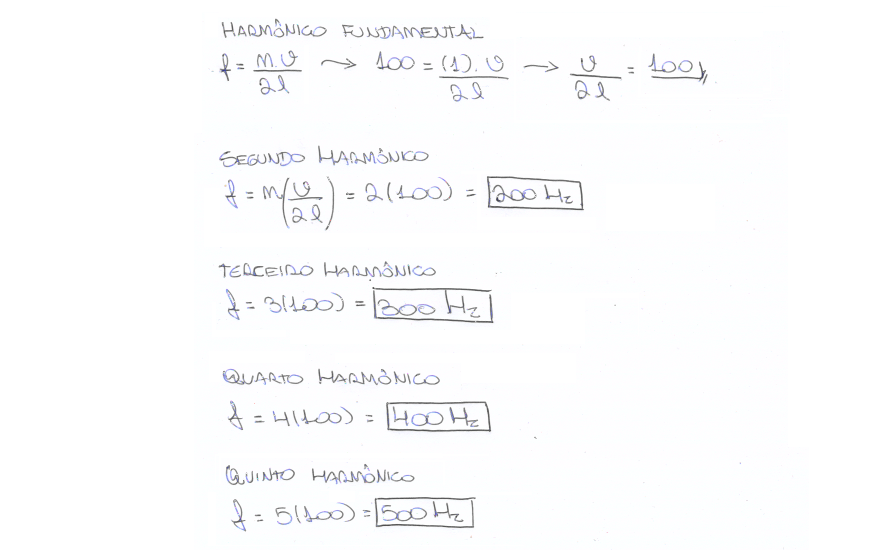 HARMÔNICO FUNDAMENTAL
f = n.v/2l → 100 = (1).v/2l → v/2l = 100
SEGUNDO HARMÔNICO
f = n(v/2l) = 2(100) = 200 Hz
TERCEIRO HARMÔNICO
f = 3(100) = 300 Hz
QUARTO HARMÔNICO
f = 4(100) = 400 Hz
QUINTO HARMÔNICO
f = 5(100) = 500 Hz